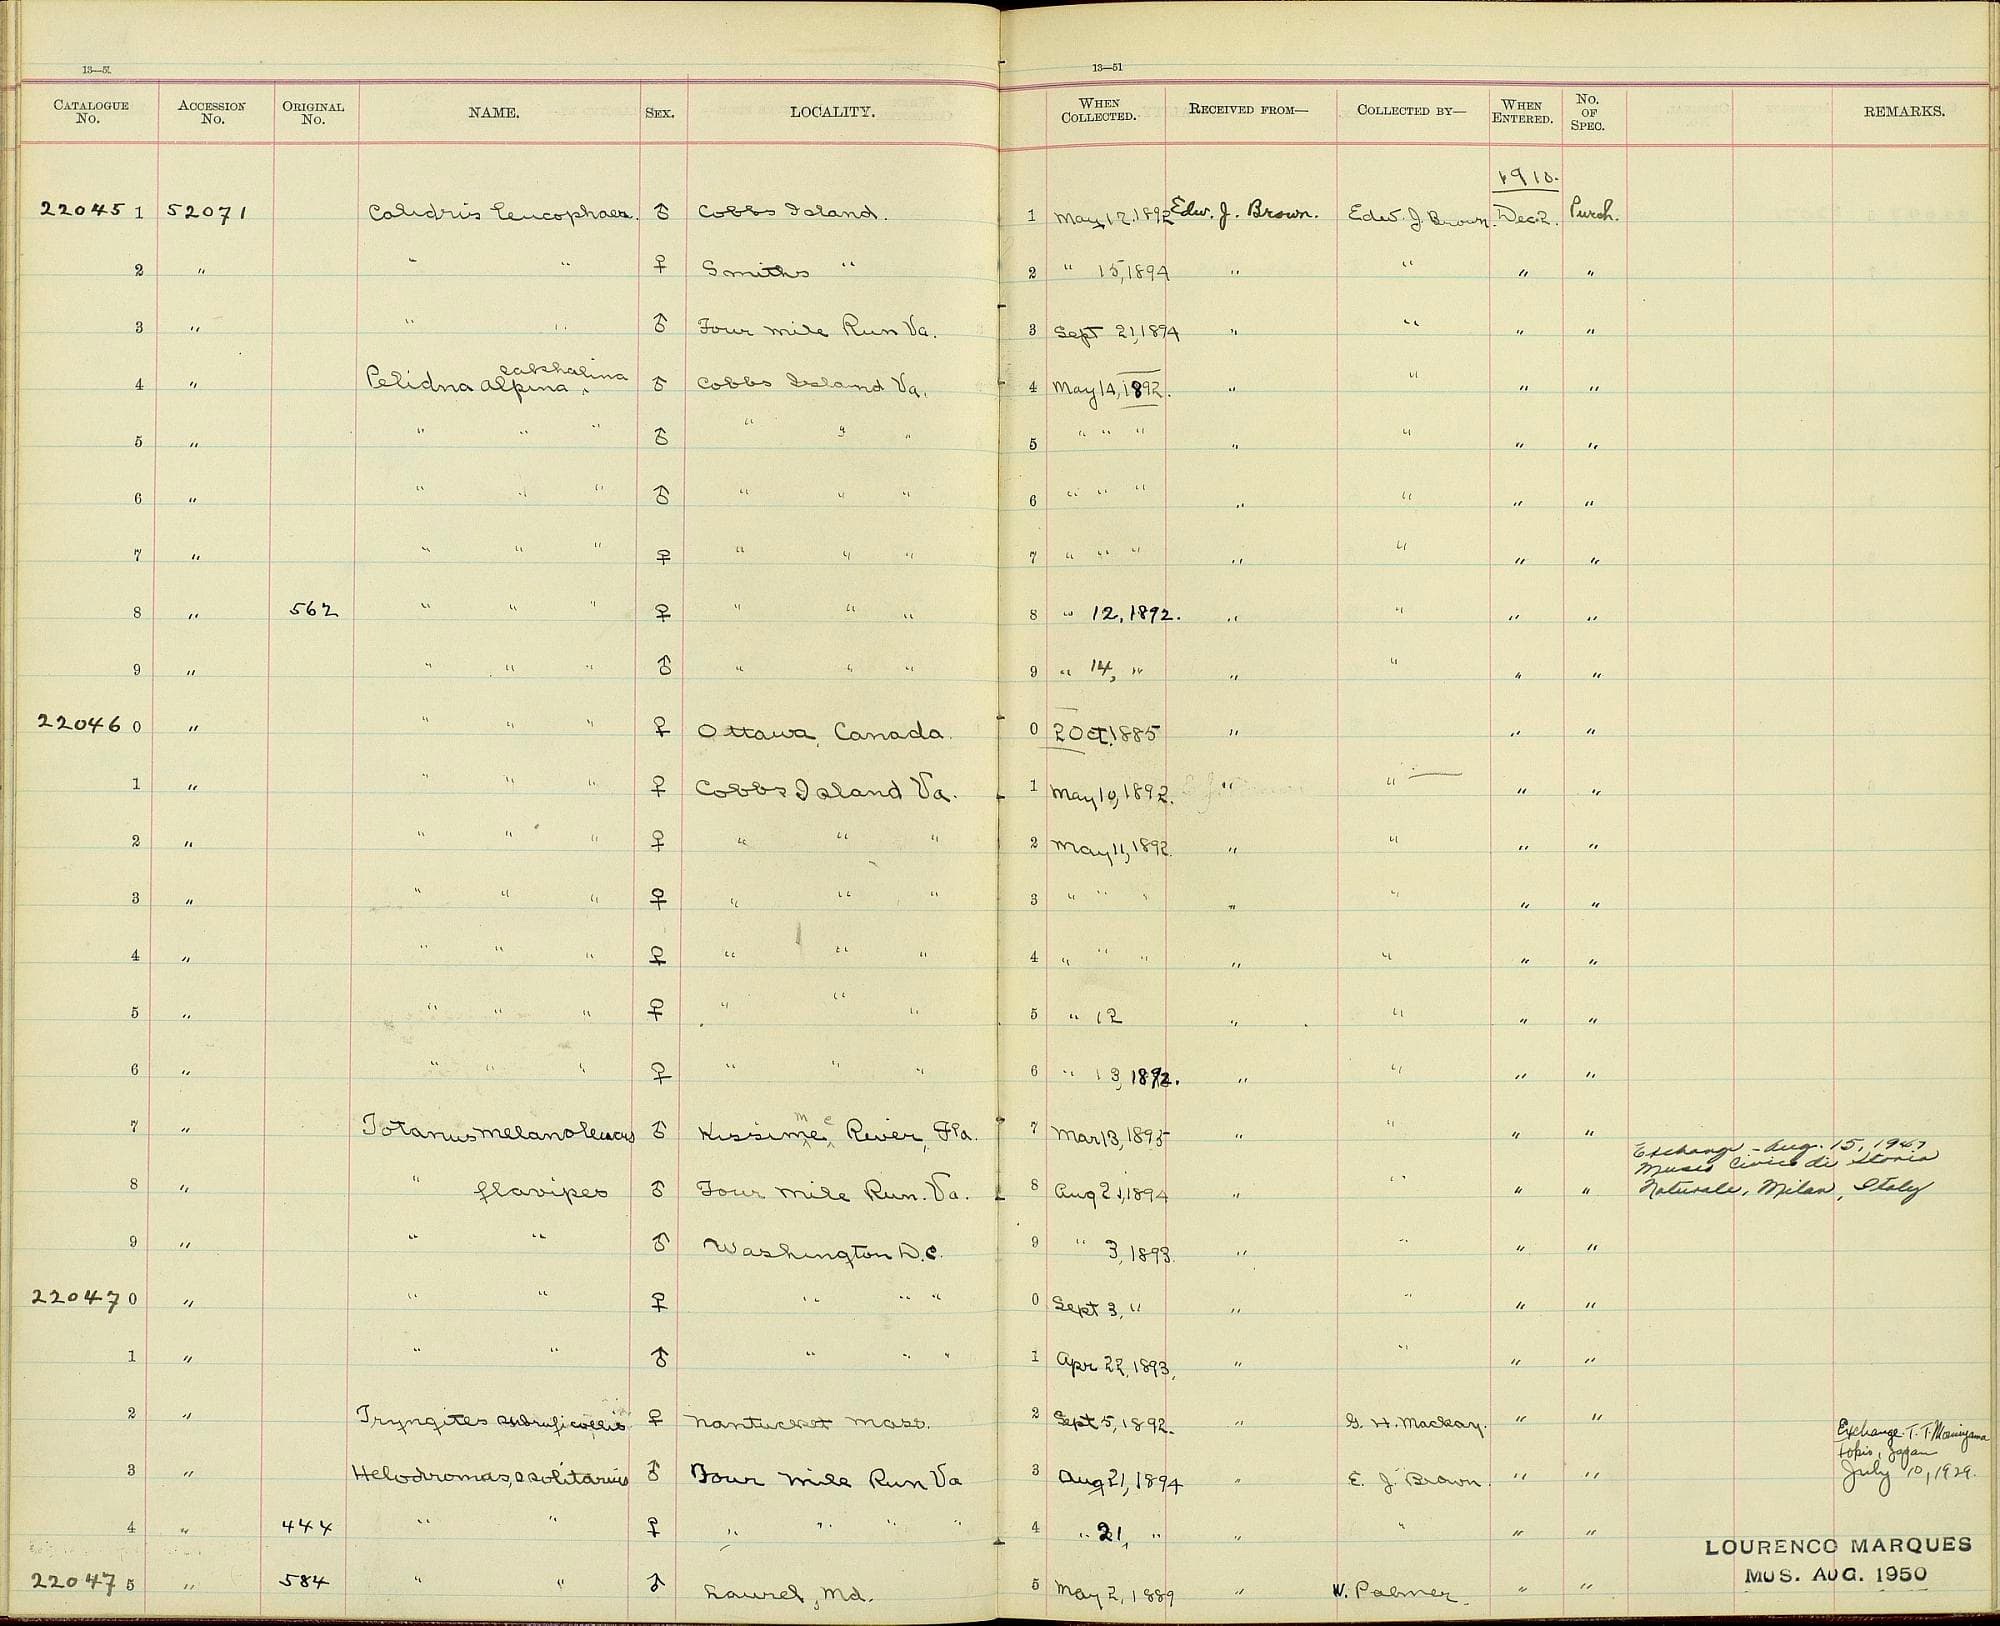 13—51 13—51
CATALOGUE No. ACCESSION No. ORIGINAL No. NAME. SEX. LOCALITY. WHEN COLLECTED. RECEIVED FROM— COLLECTED BY— WHEN ENTERED. No. OF SPEC. REMARKS.
1910.
22045 1 52071 Calidris leucophaea. ♂ Cobbs Island. 1 May 12, 1892 Edw. J. Brown. Edw. J. Brown. Dec. 2. Purch.
2 " " " ♀ Smiths " 2 " 15, 1894 " " " "
3 " " " ♂ Four mile Run Va. 3 Sept 21, 1894 " " " "
4 " Pelidna alpina sakhalina ♂ Cobbs Island Va. 4 May 14, 1892. " " " "
5 " " " " ♂ " " " 5 " " " " " " "
6 " " " " ♂ " " " 6 " " " " " " "
7 " " " " ♀ " " " 7 " " " " " " "
8 " 562 " " " ♀ " " " 8 " 12, 1892. " " " "
9 " " " " ♂ " " " 9 " 14, " " " " "
22046 0 " " " " ♀ Ottawa, Canada. 0 2 Oct. 1885 " " "
1 " " " " ♀ Cobbs Island Va. 1 May 10, 1892. " " " "
2 " " " " ♀ " " " 2 May 11, 1892. " " " "
3 " " " " ♀ " " " 3 " " " " " " "
4 " " " " ♀ " " " 4 " " " " " " "
5 " " " " ♀ " " " 5 " 12 " " " "
6 " " " " ♀ " " " 6 " 13, 1892. " " " "
7 " Totanus melanoleucus ♂ Kissimmee River, Fla. 7 Mar 13, 1895 " " " "
Exchange - Aug. 15, 1947
Museo Civico di Storia
8 " " flavipes ♂ Four mile Run. Va. 8 Aug 21, 1894 " " " " Naturale, Milan, Italy
9 " " " ♂ Washington D.C. 9 " 3, 1893. " " " "
22047 0 " " " ♀ " " " 0 Sept 3, " " " " "
1 " " " ♂ " " " 1 Apr 22, 1893, " " " "
2 " Tryngites subruficollis ♀ Nantucket Mass. 2 Sept 5, 1892. " G. H. Mackay. " "
Exchange. T. T.
Japan
3 " Helodromas, solitarius ♂ Four mile Run Va 3 Aug 21, 1894 " E. J. Brown. " " July 10, 1929.
4 " 444 " " ♀ " " " " 4 " 21, " " " " "
22047 5 " 584 " " ♂ Laurel, Md. 5 May 2, 1889 " W. Palmer. " "
LOURENCO MARQUES
MUS. AUG. 1950